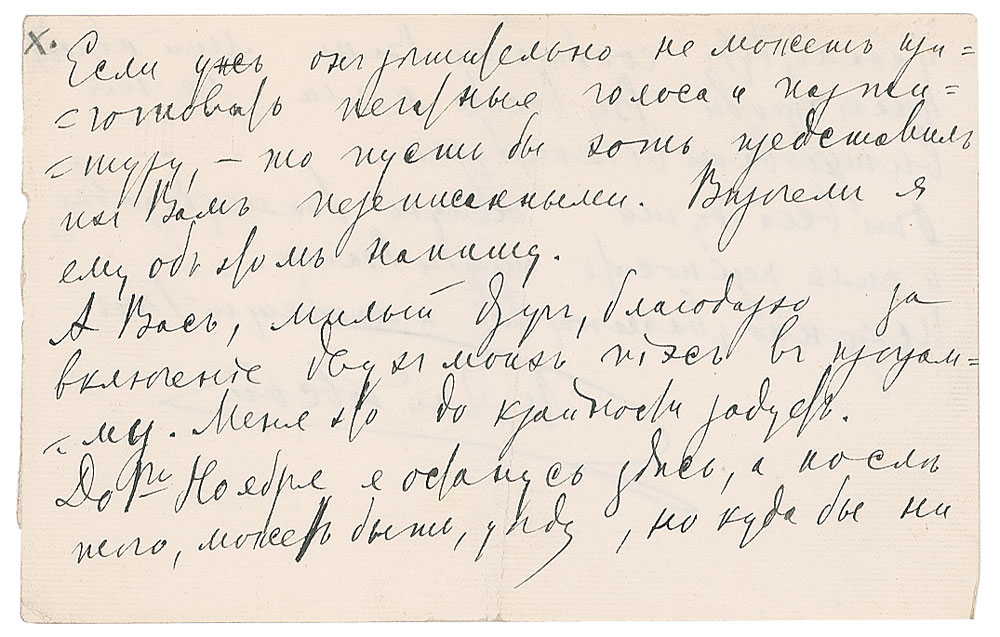 х.
Если ужъ онъ рѣшительно не можетъ при=
=готовить печатные голоса и парти=
=туру, – то пусть бы хоть представилъ
ихъ Вамъ переписанными. Впрочемъ я
ему объ этомъ напишу.
А Васъ, милый другъ, благодарю за
включеніе двухъ моихъ піэсъ въ програм=
=му. Меня это до крайности радуетъ.
До Ноября я останусь здѣсь, а послѣ
того, можетъ быть, уѣду, но куда бы ни